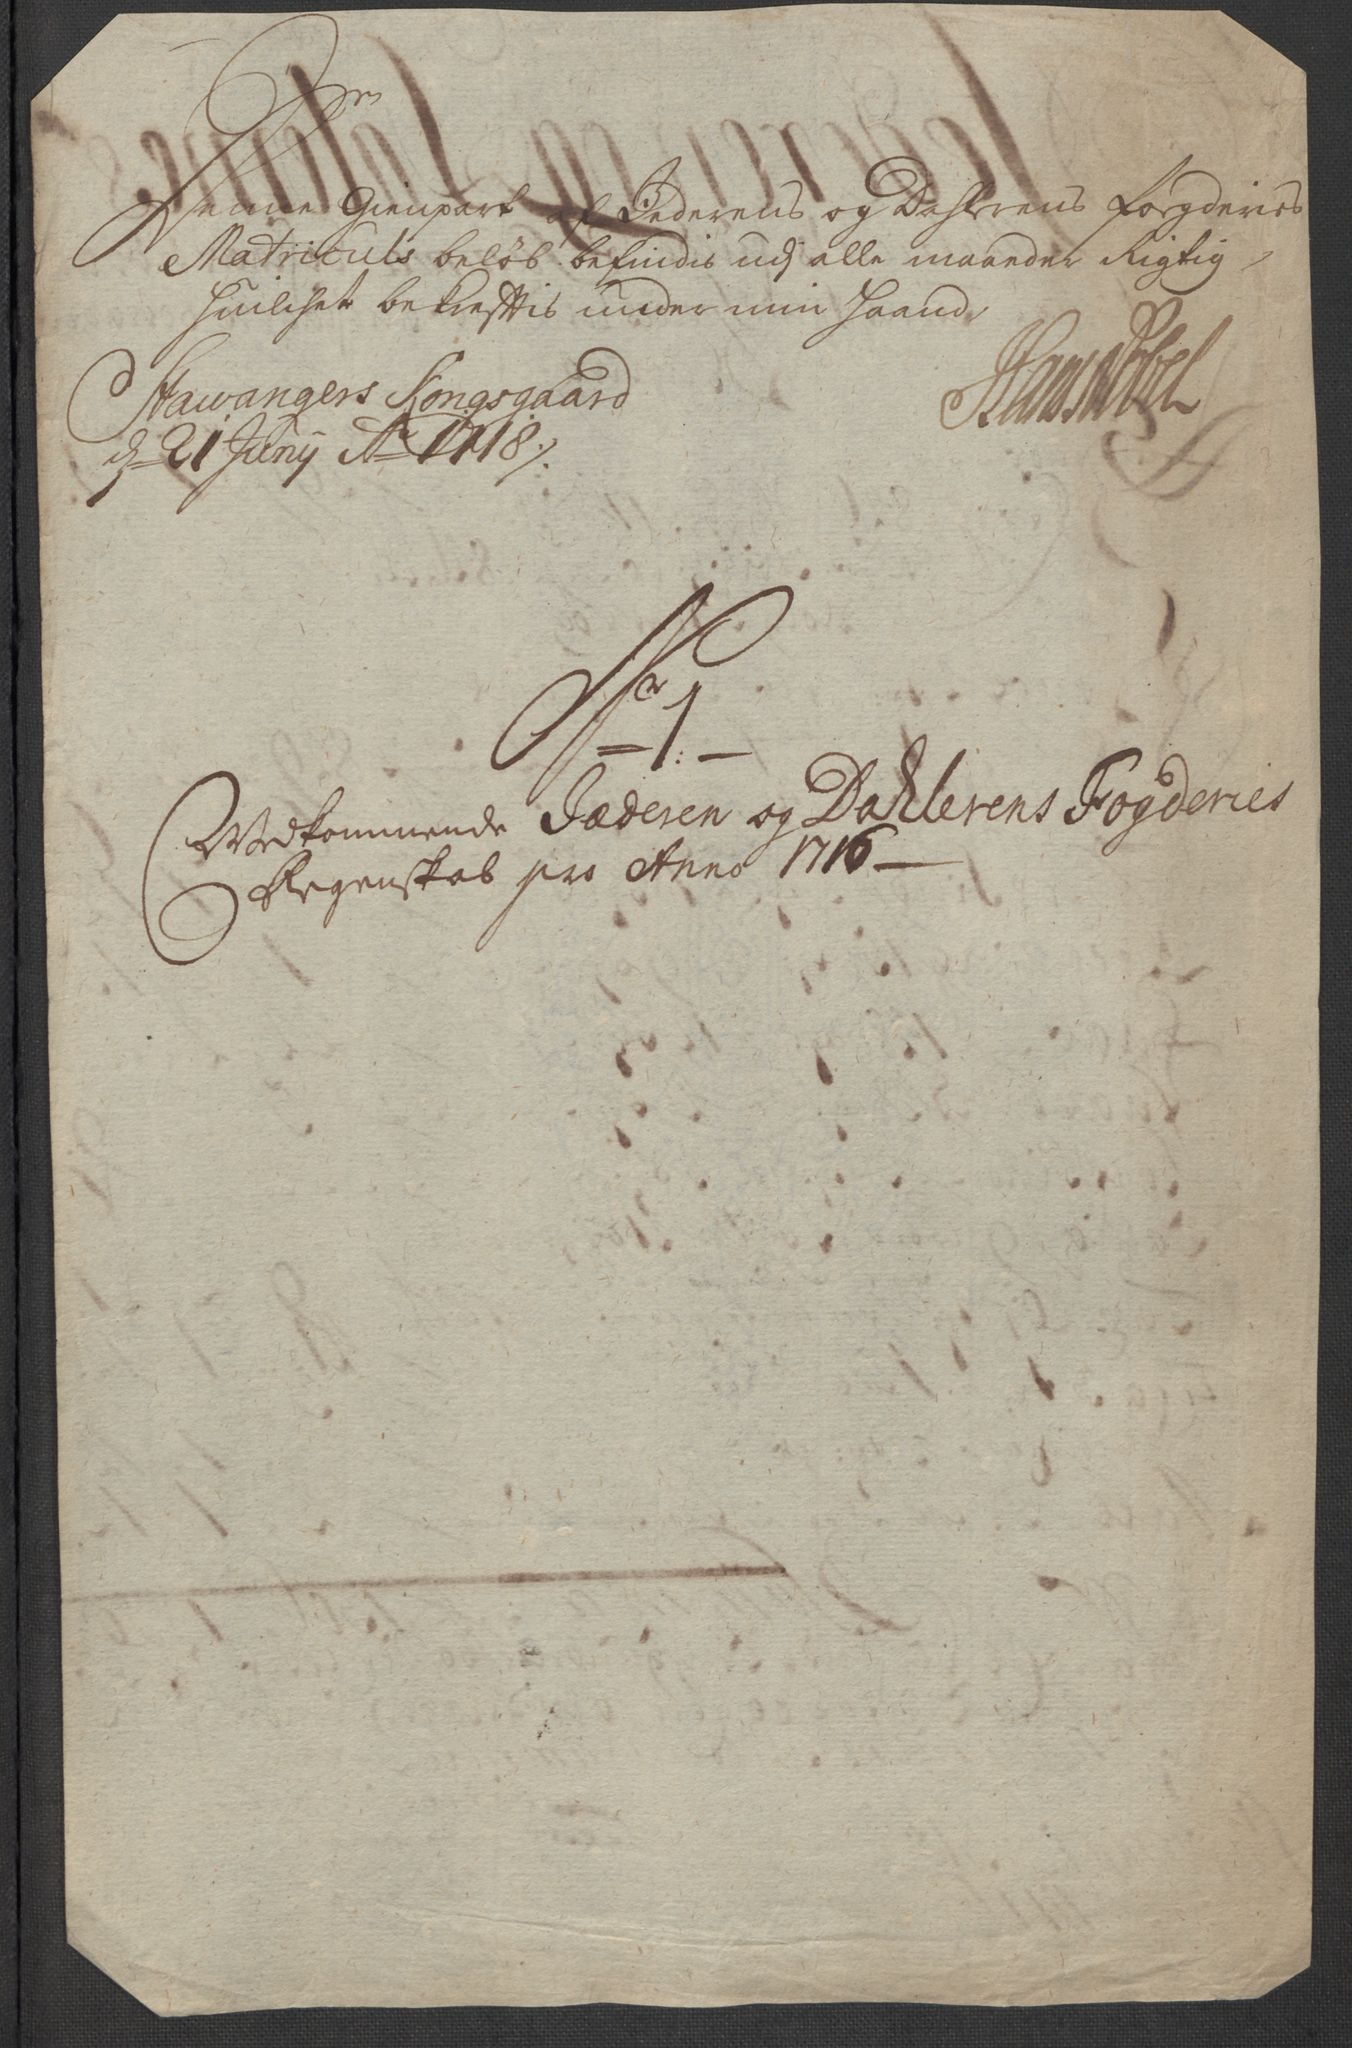 Denne Gienpart af Jederens og Dahlerens Fogderies
Matriculs beløb befindis udj alle maader Rigtig,
huilchet bekreftis under min Haand,
Stawangers Kongsgaard
d. 21 Junij Ao 1718 ∕.
Nr 1
Vedkommende Jæderen og Dahlerens Fogderies
Regenskab pro Anno 1716